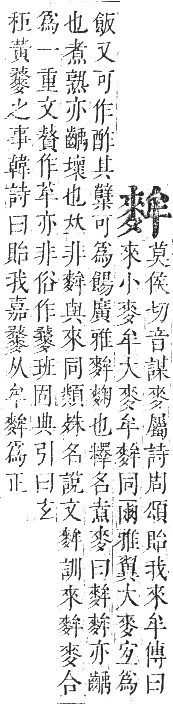 麰
莫侯切音謀麥屬詩周頌貽我來牟傳曰
來小麥牟大麥牟麰同爾雅翼大麥宜為
飯又可作酢其糵可為餳廣雅麰麴也釋名煮麥曰麰麰亦齲
也煮熟亦齲壞也𠀤非麰與來同類殊名說文麰訓來麰麥合
為一重文贅作亦非俗作班固典引曰玄
秬黃之事韓詩曰貽我嘉从牟麰為正